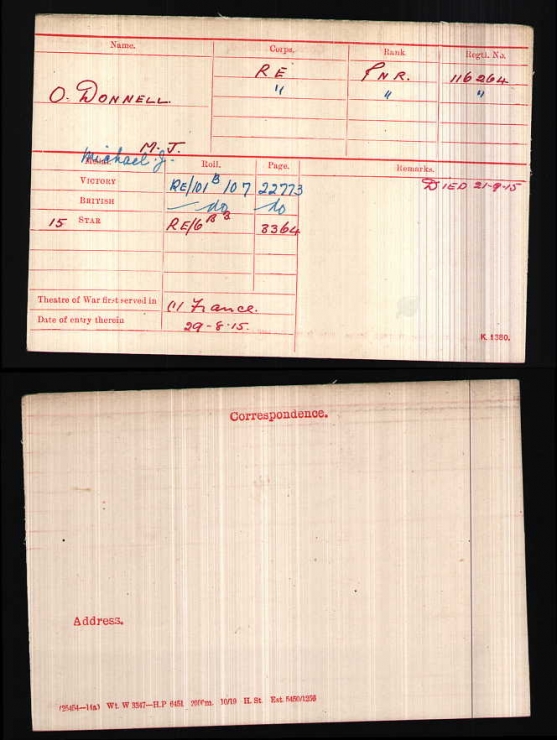 Name. Corps. Rank Regtl. No.
O. DONNELL. R E PNR. 116264
" " "
M. J.
Michael J.
Medal. Roll. Page. Remarks.
VICTORY RE/101 B 107 22773 DIED 21-9-15
BRITISH do do
15 STAR RE/6 B B 3364
Theatre of War first served in (1) France.
Date of entry therein 29-8-15.
K. 1380.
Correspondence.
Address.
Wt. W 3347—H.P 10/19 H. St.